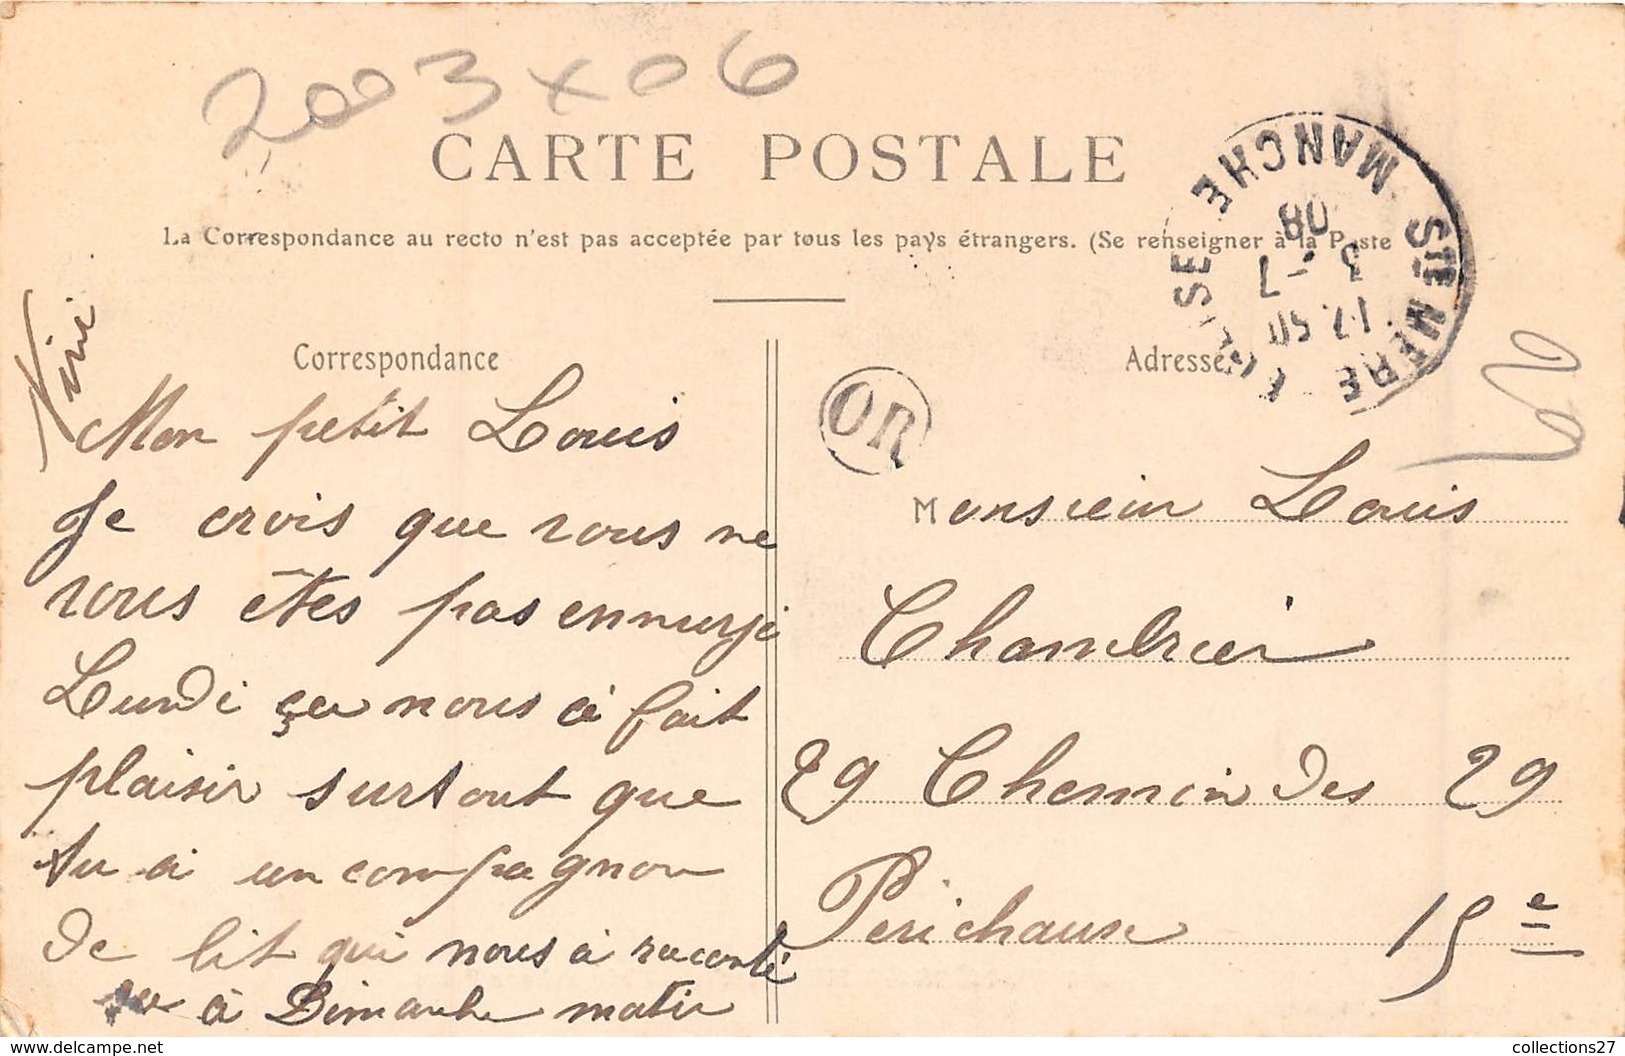 2003 x 06
CARTE POSTALE
La Correspondance au recto n'est pas acceptée par tous les pays étrangers. (Se renseigner à la Poste
STE MERE EGLISE MANCHE
17 50
3 - 7
08
Correspondance
Adresse
OR
Mon petit Louis
Je crois que vous ne
vous êtes pas ennuyé
Lundi ça nous à fait
plaisir surtout que
tu a un compagnon
de lit qui nous à raconté
ça à Dimanche matin
Nini
Monsieur Louis
Chambrier
29 Chemin des 29
Perichaux 15e
collections27